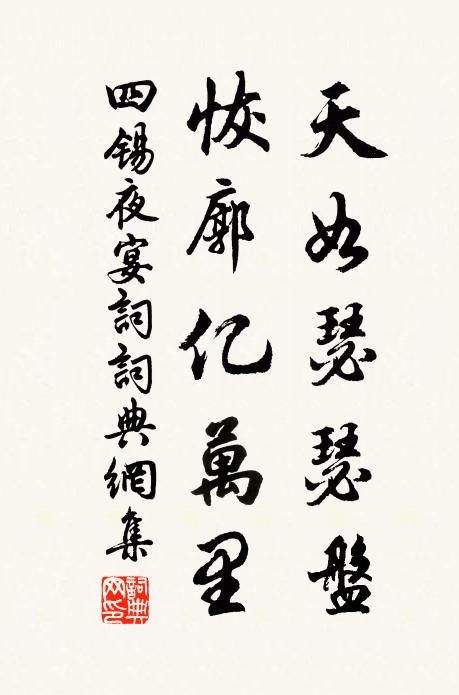 天如瑟瑟盤
恢廓亿萬里
四錫夜宴詞詞典網集
詞典
网印